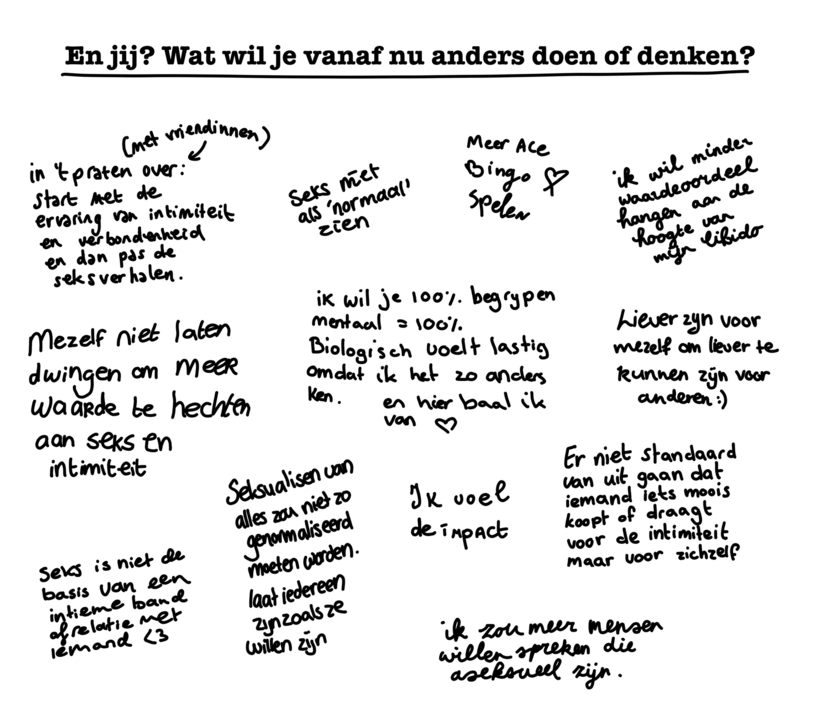 En jij? Wat wil je vanaf nu anders doen of denken?
(met vriendinnen)
in 't praten over:
start met de
ervaring van intimiteit
en verbondenheid
en dan pas de
seksverhalen.
seks niet
als 'normaal'
zien
Meer Ace
Bingo ♡
spelen
ik wil minder
waardeoordeel
hangen aan de
hoogte van
mijn libido
Mezelf niet laten
dwingen om meer
waarde te hechten
aan seks en
intimiteit
ik wil je 100% begrypen
mentaal = 100%.
Biologisch voelt lastig
omdat ik het zo anders
ken. en hier baal ik
van ♡
Liever zyn voor
mezelf om liever te
kunnen zijn voor
anderen :)
Seksualisen van
alles zou niet zo
genormaliseerd
moeten worden.
laat iedereen
zijn zoals ze
willen zijn
Ik voel
de impact
Er niet standaard
van uit gaan dat
iemand iets moois
koopt of draagt
voor de intimiteit
maar voor zichzelf
seks is niet de
basis van een
intieme band
of relatie met
iemand <3
ik zou meer mensen
willen spreken die
aseksueel zijn.